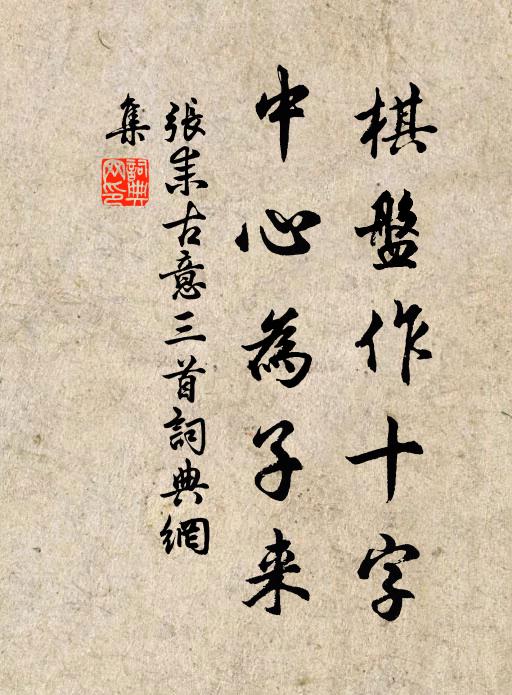 棋盤作十字
中心為子来
張耒古意三首詞典網
集
詞典
网印